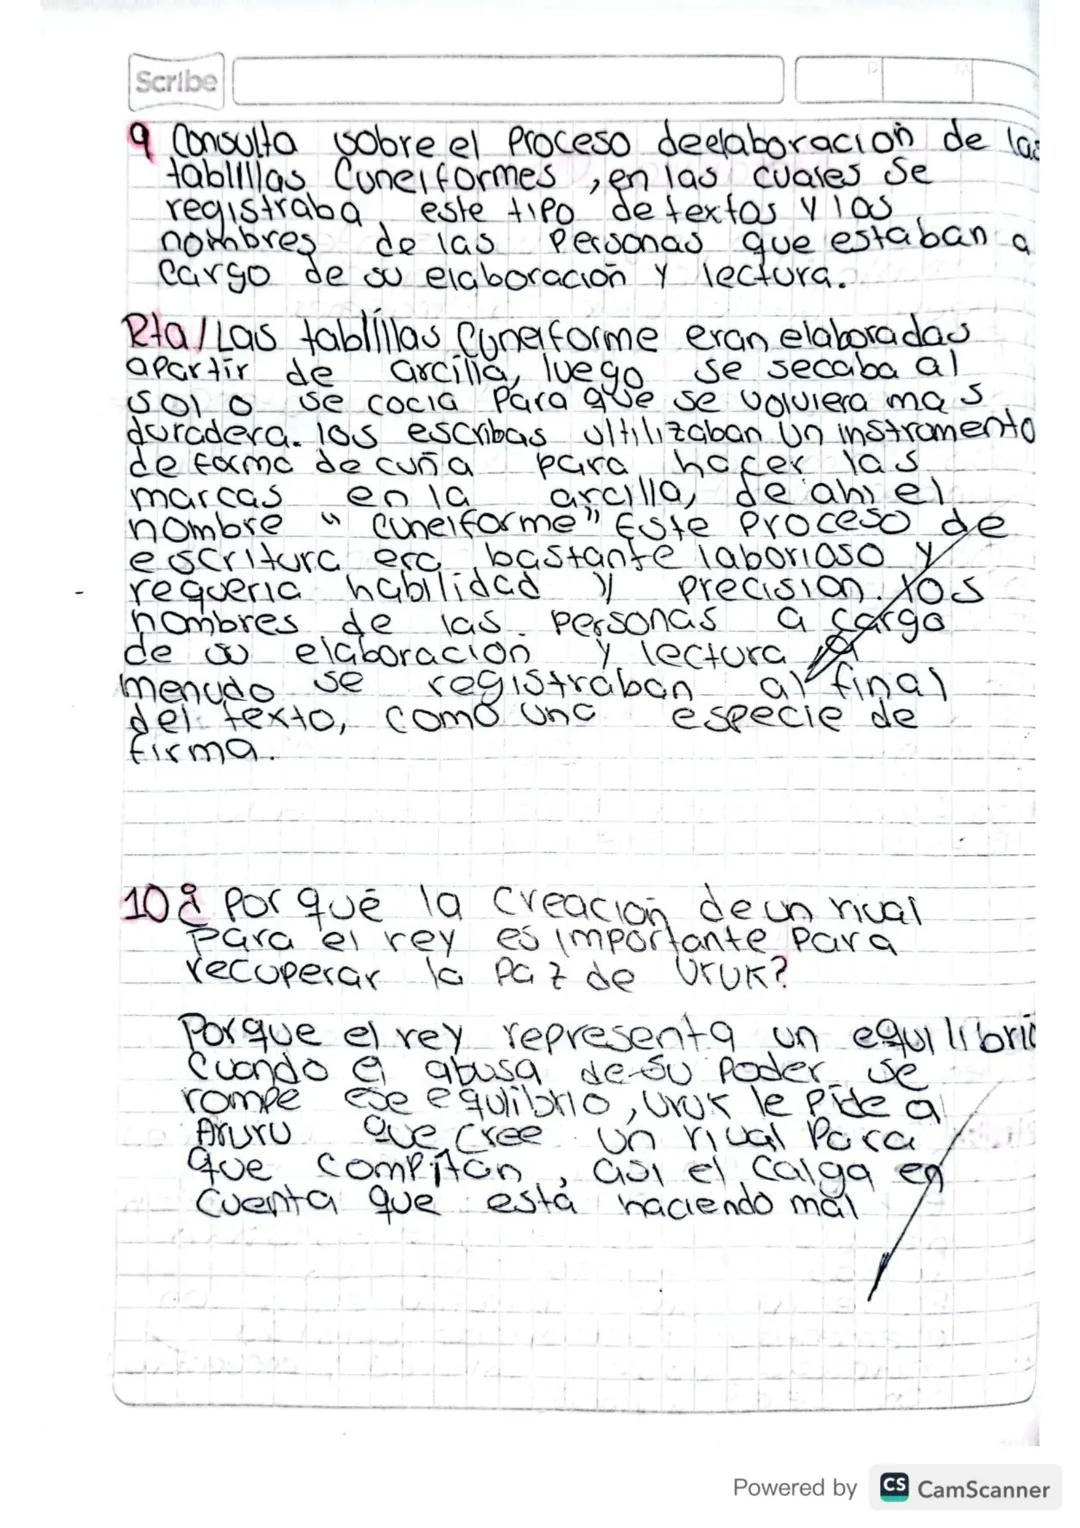 Scribe
9 Consulta sobre el Proceso deelaboracion de las
tablillas Cuneiformes, en las cuales se
registraba este tipo de textos y los
nombres de las Personas que estaban a
cargo de su elaboración y lectura.
Rta/Las tablillas Cuneiforme eran elaboradas
apartir de arcilla, luego se secaba al
sol o se cocia Para que se volviera mas
duradera. los escribas ultilizaban un instramento
de forma de cuña para hacer las
marcas en la arcilla, de ahi el
nombre "cuneiforme" Este Proceso de
escritura era bastante laborioso y
requeria habilidad y precision. Los
nombres de las Personas a cargo
de su elaboracion y lectura a
menudo se registraban al final
del texto, como una especie de
firma.
10¿ Por qué la creación de un rival
Para el rey es importante Para
recuperar la Paz de Uruk?
Porque el rey representa un equilibrio
Cuando el abusa de su Poder se
rompe ese equlibrio, Uruk le Pide a
Aruru que cree un rival Para
que compitan, asi el caiga en
cuenta que está haciendo mal
Powered by CS CamScanner